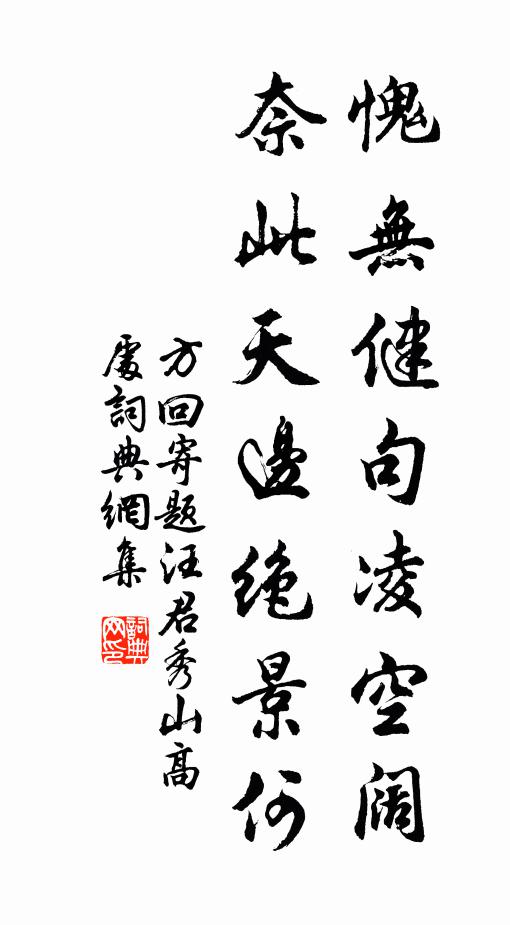 愧無健句凌空阔
奈此天邊絶景何
方回寄题汪君秀山高
處詞典網集
詞典
网印